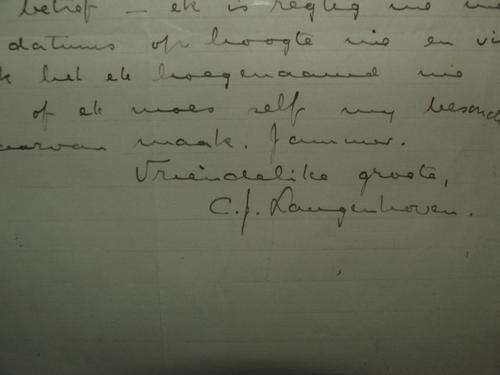 betref — ek is regtig nie
datums op hoogte nie en
het ek hoegenaamd nie
of ek moes self my
maak. Jammer.
Vriendelike groete,
C.J. Langenhoven.